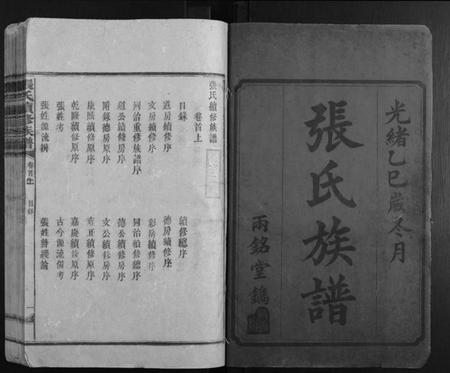 光緒乙巳歲冬月
張氏族譜
兩銘堂鐫
張氏續修族譜
卷首上
目錄
續修總序
道房續修序
德房續修序
文房續修序
彩房續修序
同治重修族譜序
同治續修總序
道公續修房序
德公續修房序
附錄德房原序
文公續修房序
康熙續修原序
雍正續修原序
乾隆續修原序
嘉慶續修原序
張姓考
古今源流備考
張姓源流辨
張姓普總論
張氏續修族譜
卷首上
目錄